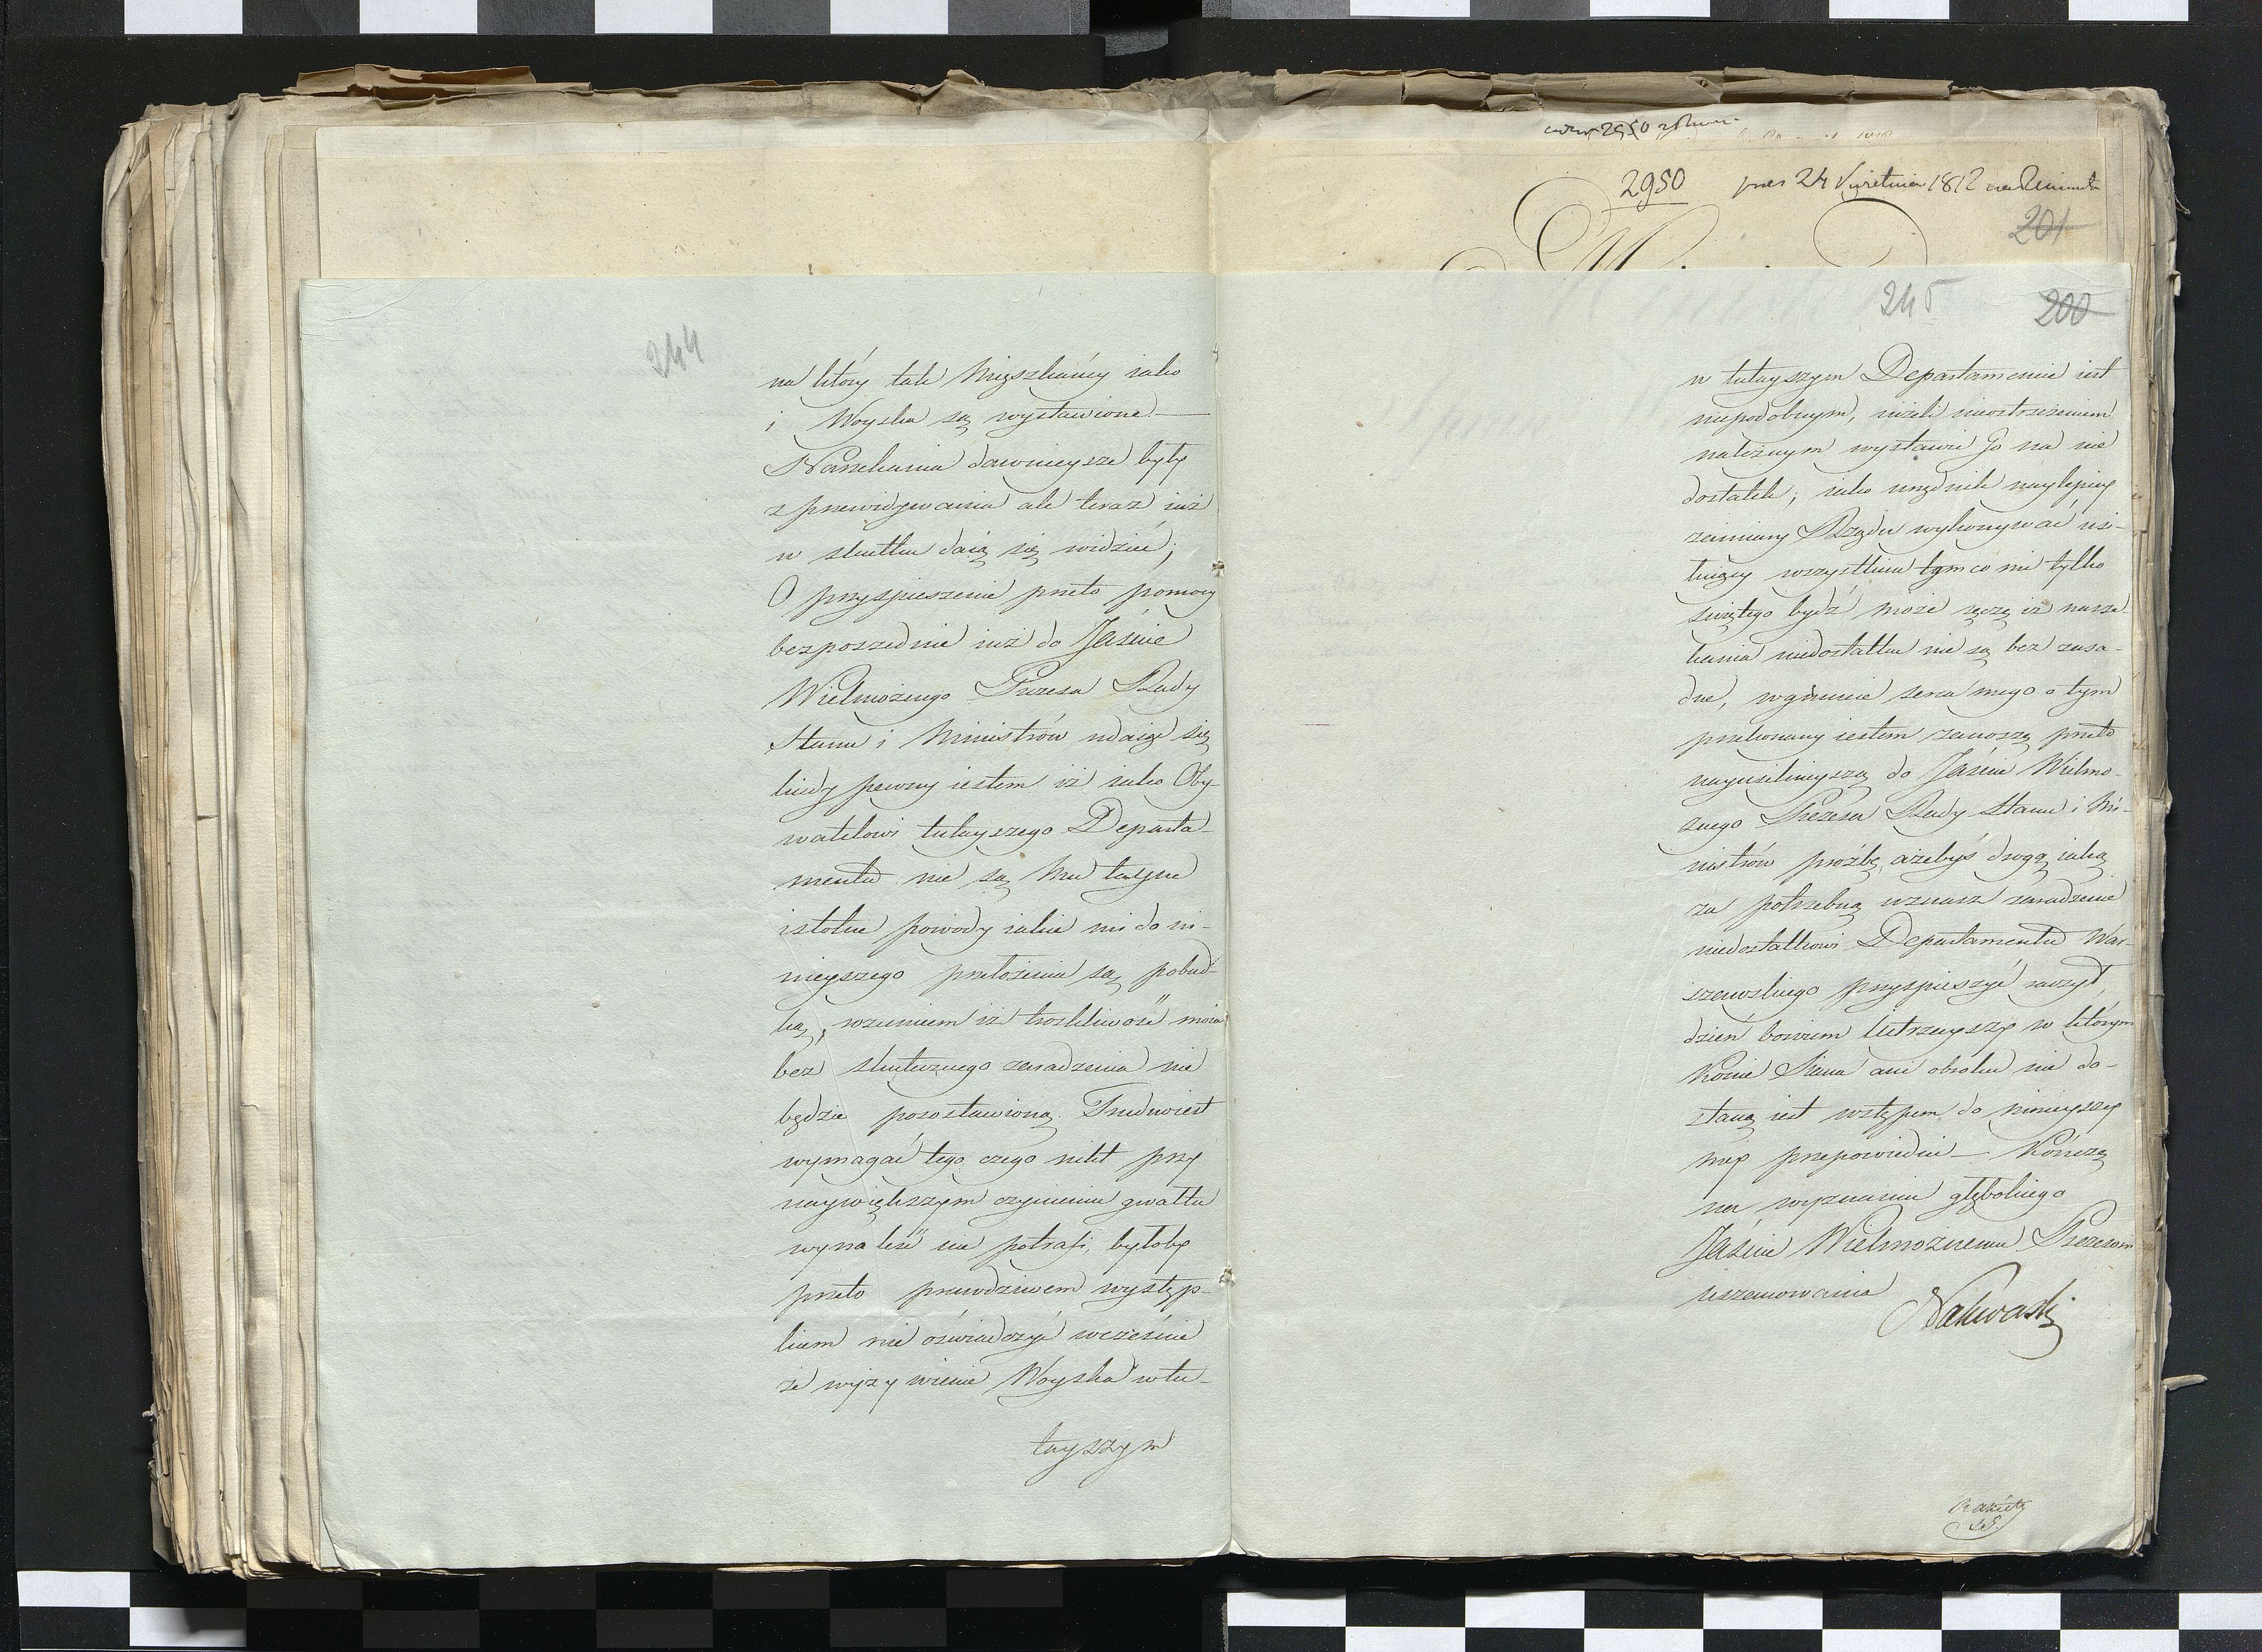 244
na który tak Mięszkańcy iako
i Woyska są wystawione —
Narzekania dawnieysze były
z przewidywania ale teraz iuż
w skutku daią się widzieć;
O przyspieszenie przeto pomocy
bezpośzednie iuż do Jaśnie
Wielmożnego Prezesa Rady
Stanu i Ministrów udaię się
kiedy pewny iestem iż iako Oby-
watelowi tutayszego Departa-
mentu nie są Mu tayne
istotne powody iakie mi do ni-
nieyszego przełożenia są pobud-
ką, rozumiem iż troskliwość moia
bez skutecznego zaradzenia nie
będzie pozostawioną. Trudno iest
wymagać tego czego nikt przy
naywiększym czynieniu gwałtu
wynaleść nie potrafi, byłoby
przeto prawdziwem występ-
kiem nie oświadczyć wcześnie
że wyżywienie Woyska w tu-
tayszym
2950 pres 24 Kwietnia 1812
201
245 200
w tutayszym Departamencie iest
niepodobnym, ieżeli nieostrzeżeniem
należnym wystawię Go na nie
dostatek; iako urzędnik naylepiey
zamiary Rządu wykonywać usi-
łuiący wszystkiem tym co nie tylko
świętego bydź może ręczę iż narze
kania niedostatku nie są bez zasa-
dne, w gruncie serca mego o tym
przekonany iestem zanoszę przeto
nayusilnieyszą do Jaśnie Wielmo-
żnego Prezesa Rady Stanu i Mi-
nistrów prożbę, ażebyś drogą iaką
za potrzebną uznasz zaradzenie
niedostatkowi Departamentu War-
szawskiego przyspieszyć raczył,
dzień bowiem iutrzeyszy w którym
Konie Siana ani obroku nie do-
staną iest wstępem do ninieyszey
mey przepowiedni — Kończę
na wyznaniu głębokiego
Jaśnie Wielmożnemu Prezesowi
uszanowania
Nakwaski